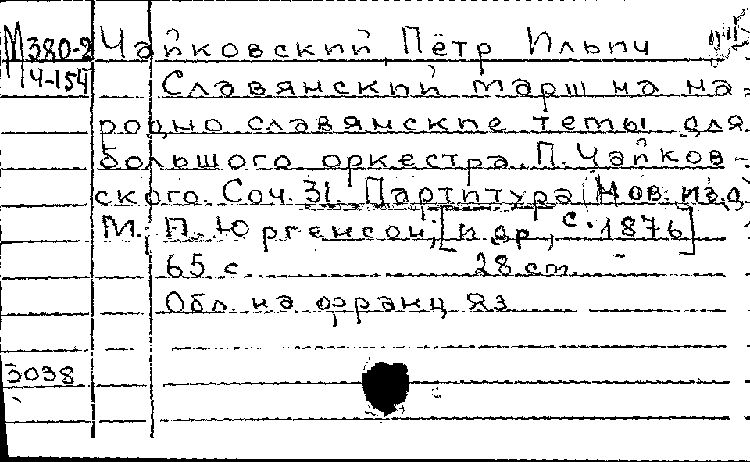 М380-2 Чайковский, Пётр Ильич
Ч-154 Славянский марш на на-
родно славянские темы для
большого оркестра П. Чайков-
ского. Соч. 31. Партитура Нов. изд
М., П. Юргенсон, [ц. др., с. 1876]
65 с. 28 cm.
Обл. на франц яз
3038